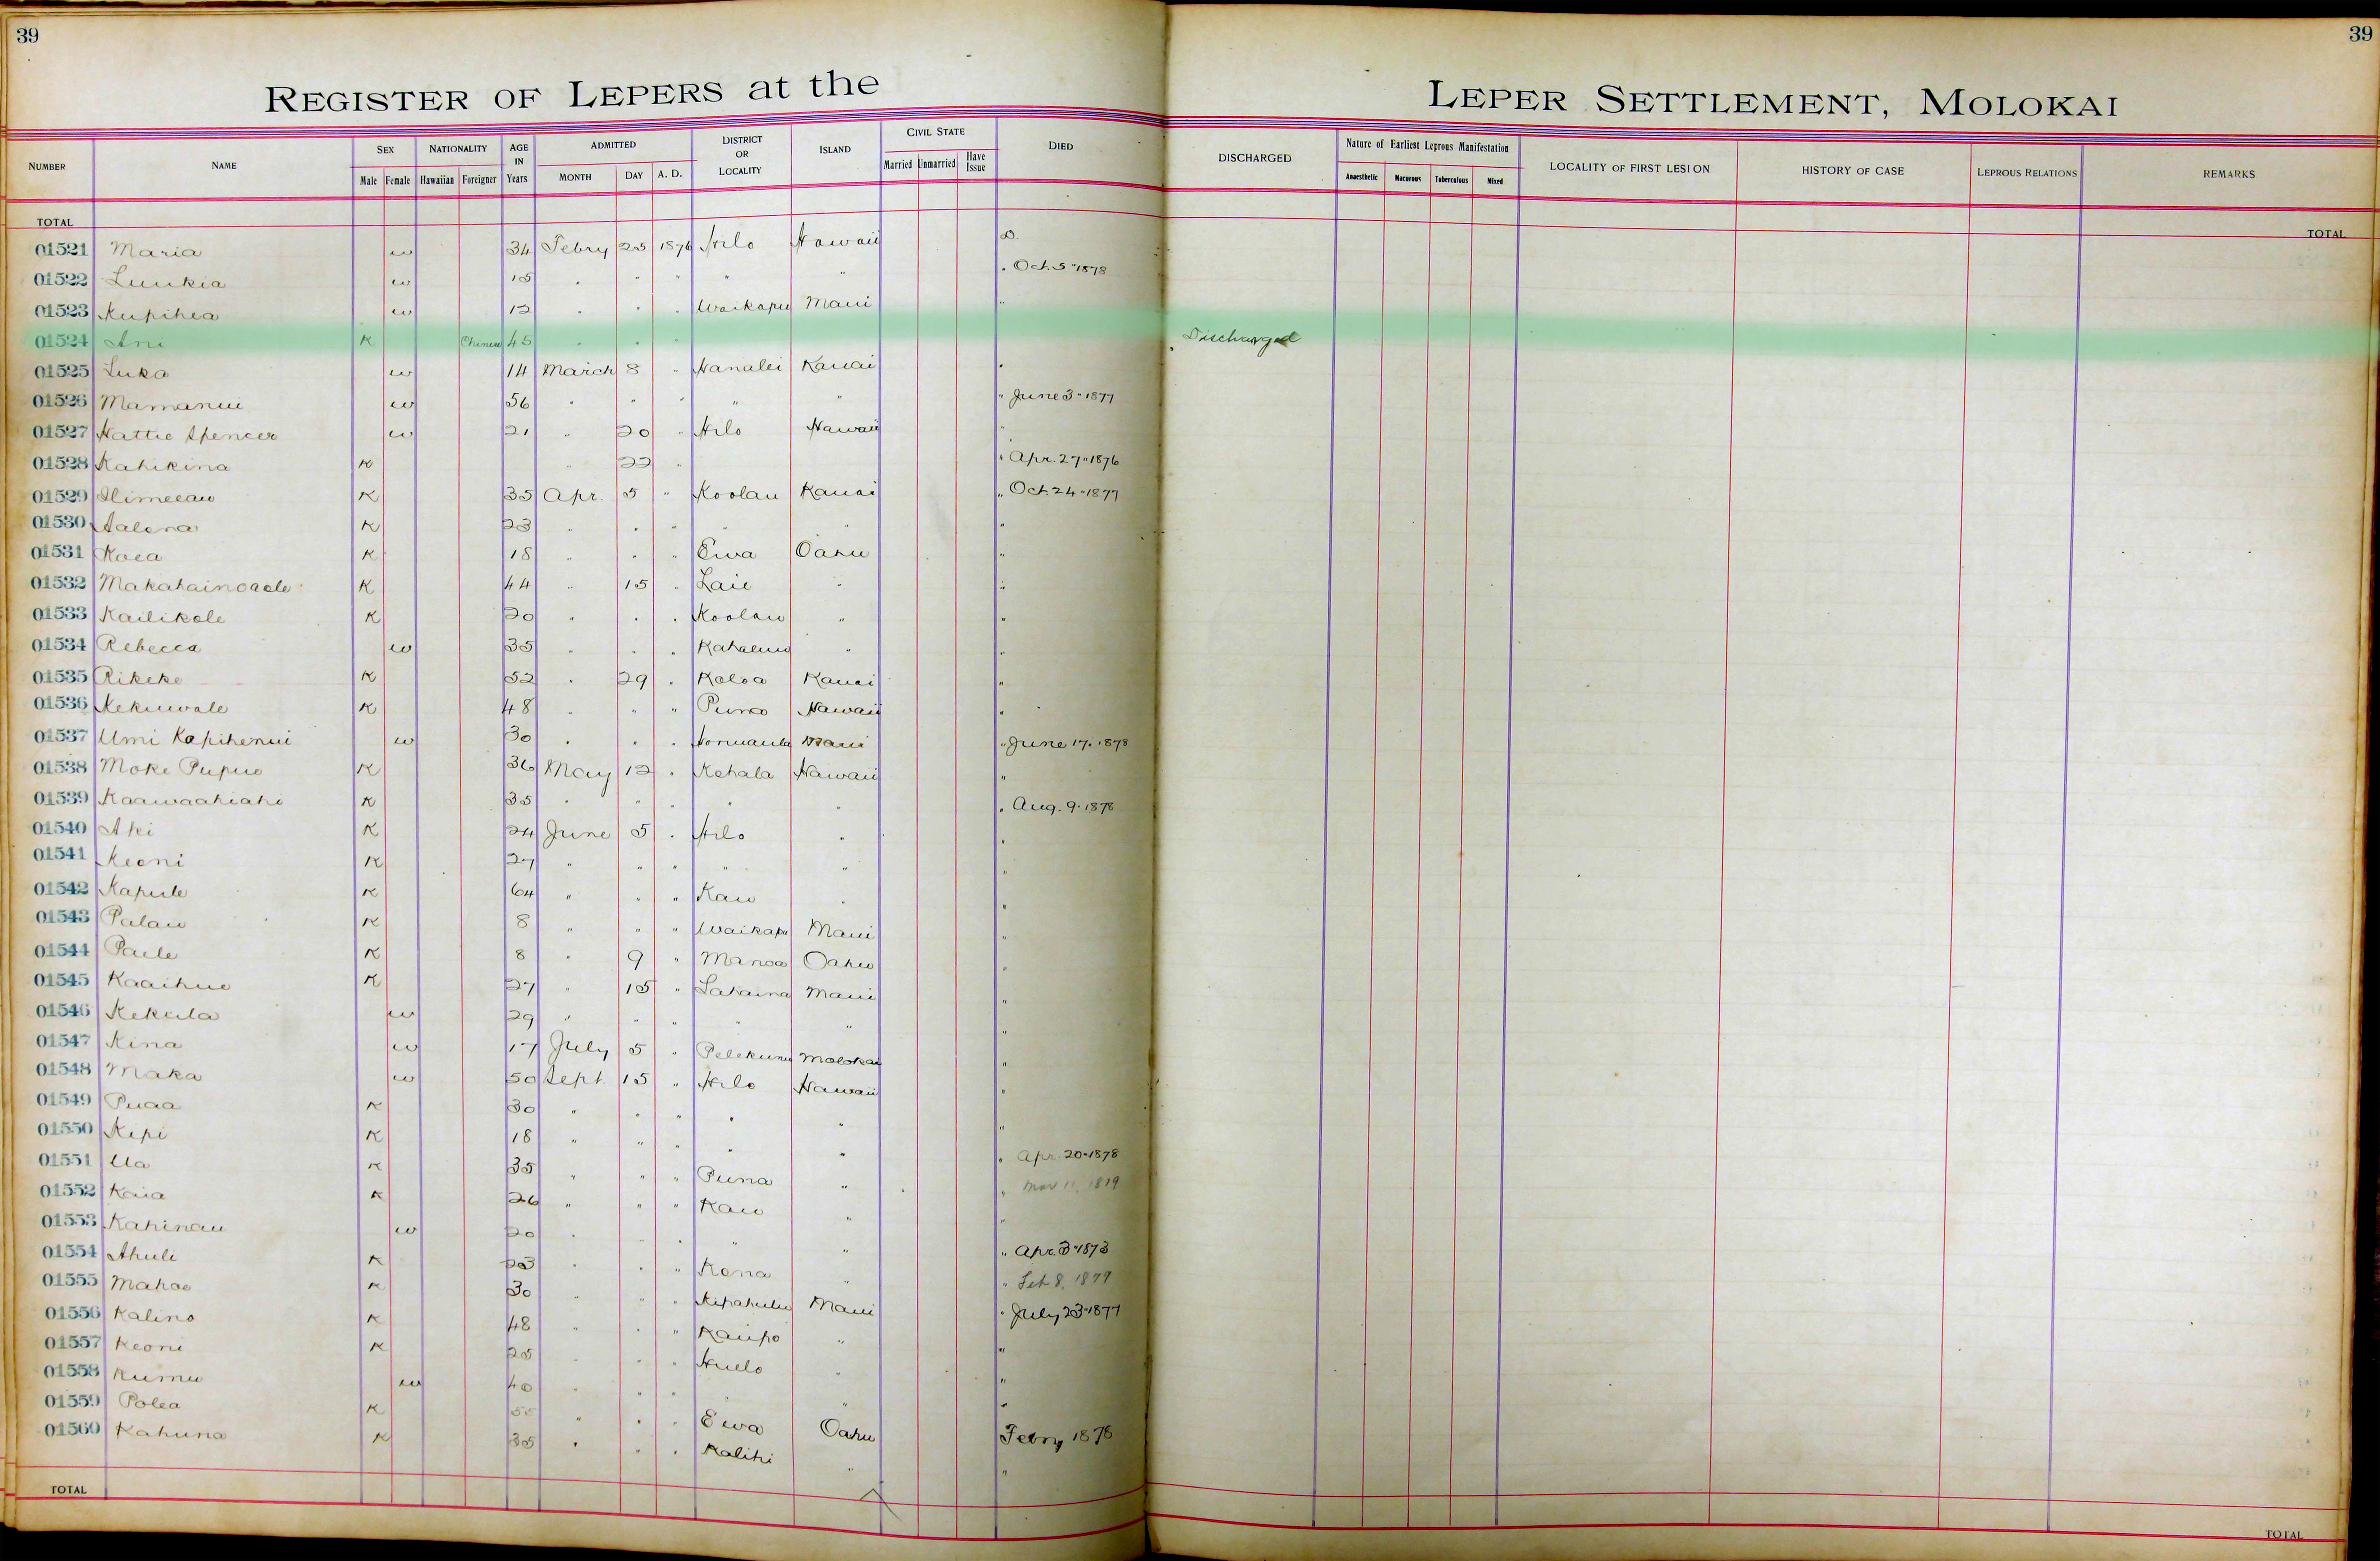 39
39
REGISTER OF LEPERS at the
LEPER SETTLEMENT, MOLOKAI
NUMBER NAME SEX Male Female NATIONALITY Hawaiian Foreigner AGE IN Years ADMITTED MONTH DAY A. D. DISTRICT OR LOCALITY ISLAND CIVIL STATE Married Unmarried Have Issue DIED DISCHARGED Nature of Earliest Leprous Manifestation Anaesthetic Macurous Tuberculous Mixed LOCALITY OF FIRST LESION HISTORY OF CASE LEPROUS RELATIONS REMARKS
TOTAL TOTAL
01521 Maria w 34 Febry 25 1876 Hilo Hawaii D.
01522 Luukia w 15 " " " " " " Oct. 5-1878
01523 Kupihea w 12 " " " Waikapu Maui "
01524 Ani K Chinese 45 " " " Discharged
01525 Luka w 14 March 8 " Hanalei Kauai "
01526 Mamanui w 56 " " " " " " June 3-1877
01527 Hattie Spencer w 21 " 20 " Hilo Hawaii "
01528 Kahikina K " 22 " " Apr. 27-1876
01529 K 35 Apr. 5 " Koolau Kauai " Oct. 24-1877
01530 Aalona K 23 " " " " " "
01531 Koea K 18 " " " Ewa Oahu "
01532 Makahainoaole K 44 " 15 " Laie " "
01533 Kailikole K 20 " " " Koolau " "
01534 Rebecca w 35 " " " Kahaluu " "
01535 Rikeke K 52 " 29 " Koloa Kauai "
01536 Kekuwale K 48 " " " Puna Hawaii "
01537 Umi Kapihenui w 30 " " " Honuaula Maui " June 17. 1878
01538 Moke Pupuo K 36 May 12 " Kohala Hawaii "
01539 Kaawaahiahi K 35 " " " " " " Aug. 9. 1878
01540 Aki K 24 June 5 " Hilo " "
01541 Keoni K 27 " " " " " "
01542 Kapule K 64 " " " Kau " "
01543 Palau K 8 " " " Waikapu Maui "
01544 Paule K 8 " 9 " Manoa Oahu "
01545 Kaaihue K 27 " 15 " Lahaina Maui "
01546 Kekula w 29 " " " " " "
01547 Kina w 17 July 5 " Pelekunu Molokai "
01548 Maka w 50 Sept. 15 " Hilo Hawaii "
01549 Puaa K 30 " " " " " "
01550 Kipi K 18 " " " " " "
01551 Ua K 35 " " " Puna " " Apr. 20-1878
01552 Kaia K 26 " " " Kau " " Mar 11, 1879
01553 Kahinau w 20 " " " " " "
01554 Ahuli K 23 " " " Kona " " Apr. 3-1873
01555 Mahoe K 30 " " " Kipahulu Maui " Feb 8, 1879
01556 Kalino K 48 " " " Kaupo " " July 23-1877
01557 Keoni K 25 " " " Huelo " "
01558 Kumu w 40 " " " "
01559 Polea K 55 " " " Ewa Oahu "
01560 Kahuna K 35 " " " Kalihi " Febry 1878
TOTAL
TOTAL